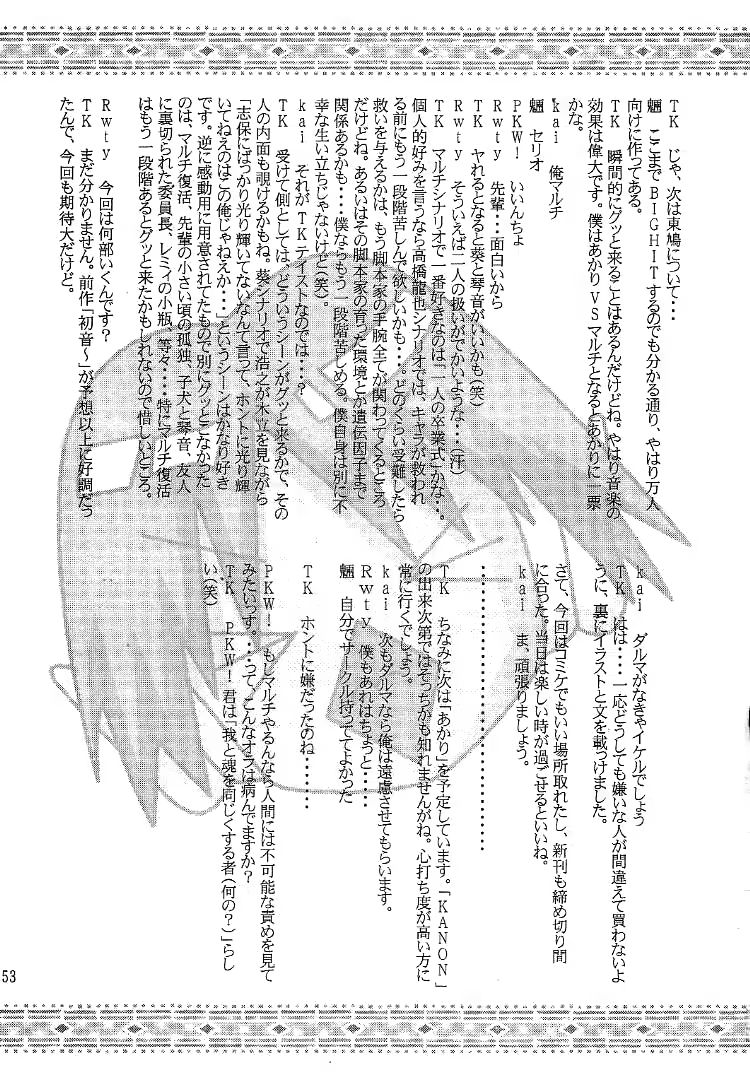 TK　じゃ、次は東鳩について・・・
魎　ここまでBIGHITするのでも分かる通り、やはり万人
向けに作ってある。
TK　瞬間的にグッと来ることはあるんだけどね。やはり音楽の
効果は偉大です。僕はあかりVSマルチとなるとあかりに一票
かな。
kai　俺マルチ
魎　セリオ
PKW!　いいんちょ
Rwty　先輩・・・面白いから
TK　ヤれるとなると葵と琴音がいいかも(笑)
Rwty　そういえば二人の扱いがでかいような・・・・(汗)
TK　マルチシナリオで一番好きなのは「二人の卒業式」かな・・。
個人的好みを言うなら高橋龍也シナリオでは、キャラが救われ
る前にもう一段階苦しんで欲しいかも・・・。どのくらい受難したら
救いを与えるかは、もう脚本家の手腕全てが関わってくるところ
だけどね。あるいはその脚本家の育った環境とか遺伝因子まで
関係あるかも・・・・僕ならもう一段階苦しめる。僕自身は別に不
幸な生い立ちじゃないけど(笑)。
kai　それがTKテイストなのでは・・・・?
TK　受けて側としては、どういうシーンがグッと来るかで、その
人の内面も覗けるかもね。葵シナリオで浩之が木立を見ながら
「志保にばっかり光り輝いてないなんて言って、ホントに光り輝
いてねえのはこの俺じゃねえか・・・」というシーンはかなり好き
です。逆に感動用に用意されてたもので別にグッとこなかった
のは、マルチ復活、先輩の小さい頃の孤独、子犬と琴音、友人
に裏切られた委員長、レミィの小瓶、等々・・・・特にマルチ復活
はもう一段階あるとグッと来たかもしれないので惜しいところ。
Rwty　今回は何部いくんです?
TK　まだ分かりません。前作「初音〜」が予想以上に好調だっ
たんで、今回も期待大だけど。
kai　ダルマがなきゃイケルでしょう
TK　はは・・・・一応どうしても嫌いな人が間違えて買わないよ
うに、裏にイラストと文を載っけました。
さて、今回はコミケでもいい場所取れたし、新刊も締め切り間
に合った。当日は楽しい時が過ごせるといいね。
kai　ま、頑張りましょう。
・・・・・・・・・・・・・・・・・・・・・・・・・
TK　ちなみに次は「あかり」を予定しています。「KANON」
の出来次第ではそっちかも知れませんがね。心打ち度が高い方に
常に行くでしょう。
kai　次もダルマなら俺は遠慮させてもらいます。
Rwty　僕もあれはちょっと・・・・
魎　自分でサークル持っててよかった
TK　ホントに嫌だったのね・・・・・・・・
PKW!　もしマルチやるんなら人間には不可能な責めを見て
みたいっす。・・・って、こんなオラは病んでますか?
TK　PKW!君は「我と魂を同じくする者(何の?)」らし
い(笑)
53